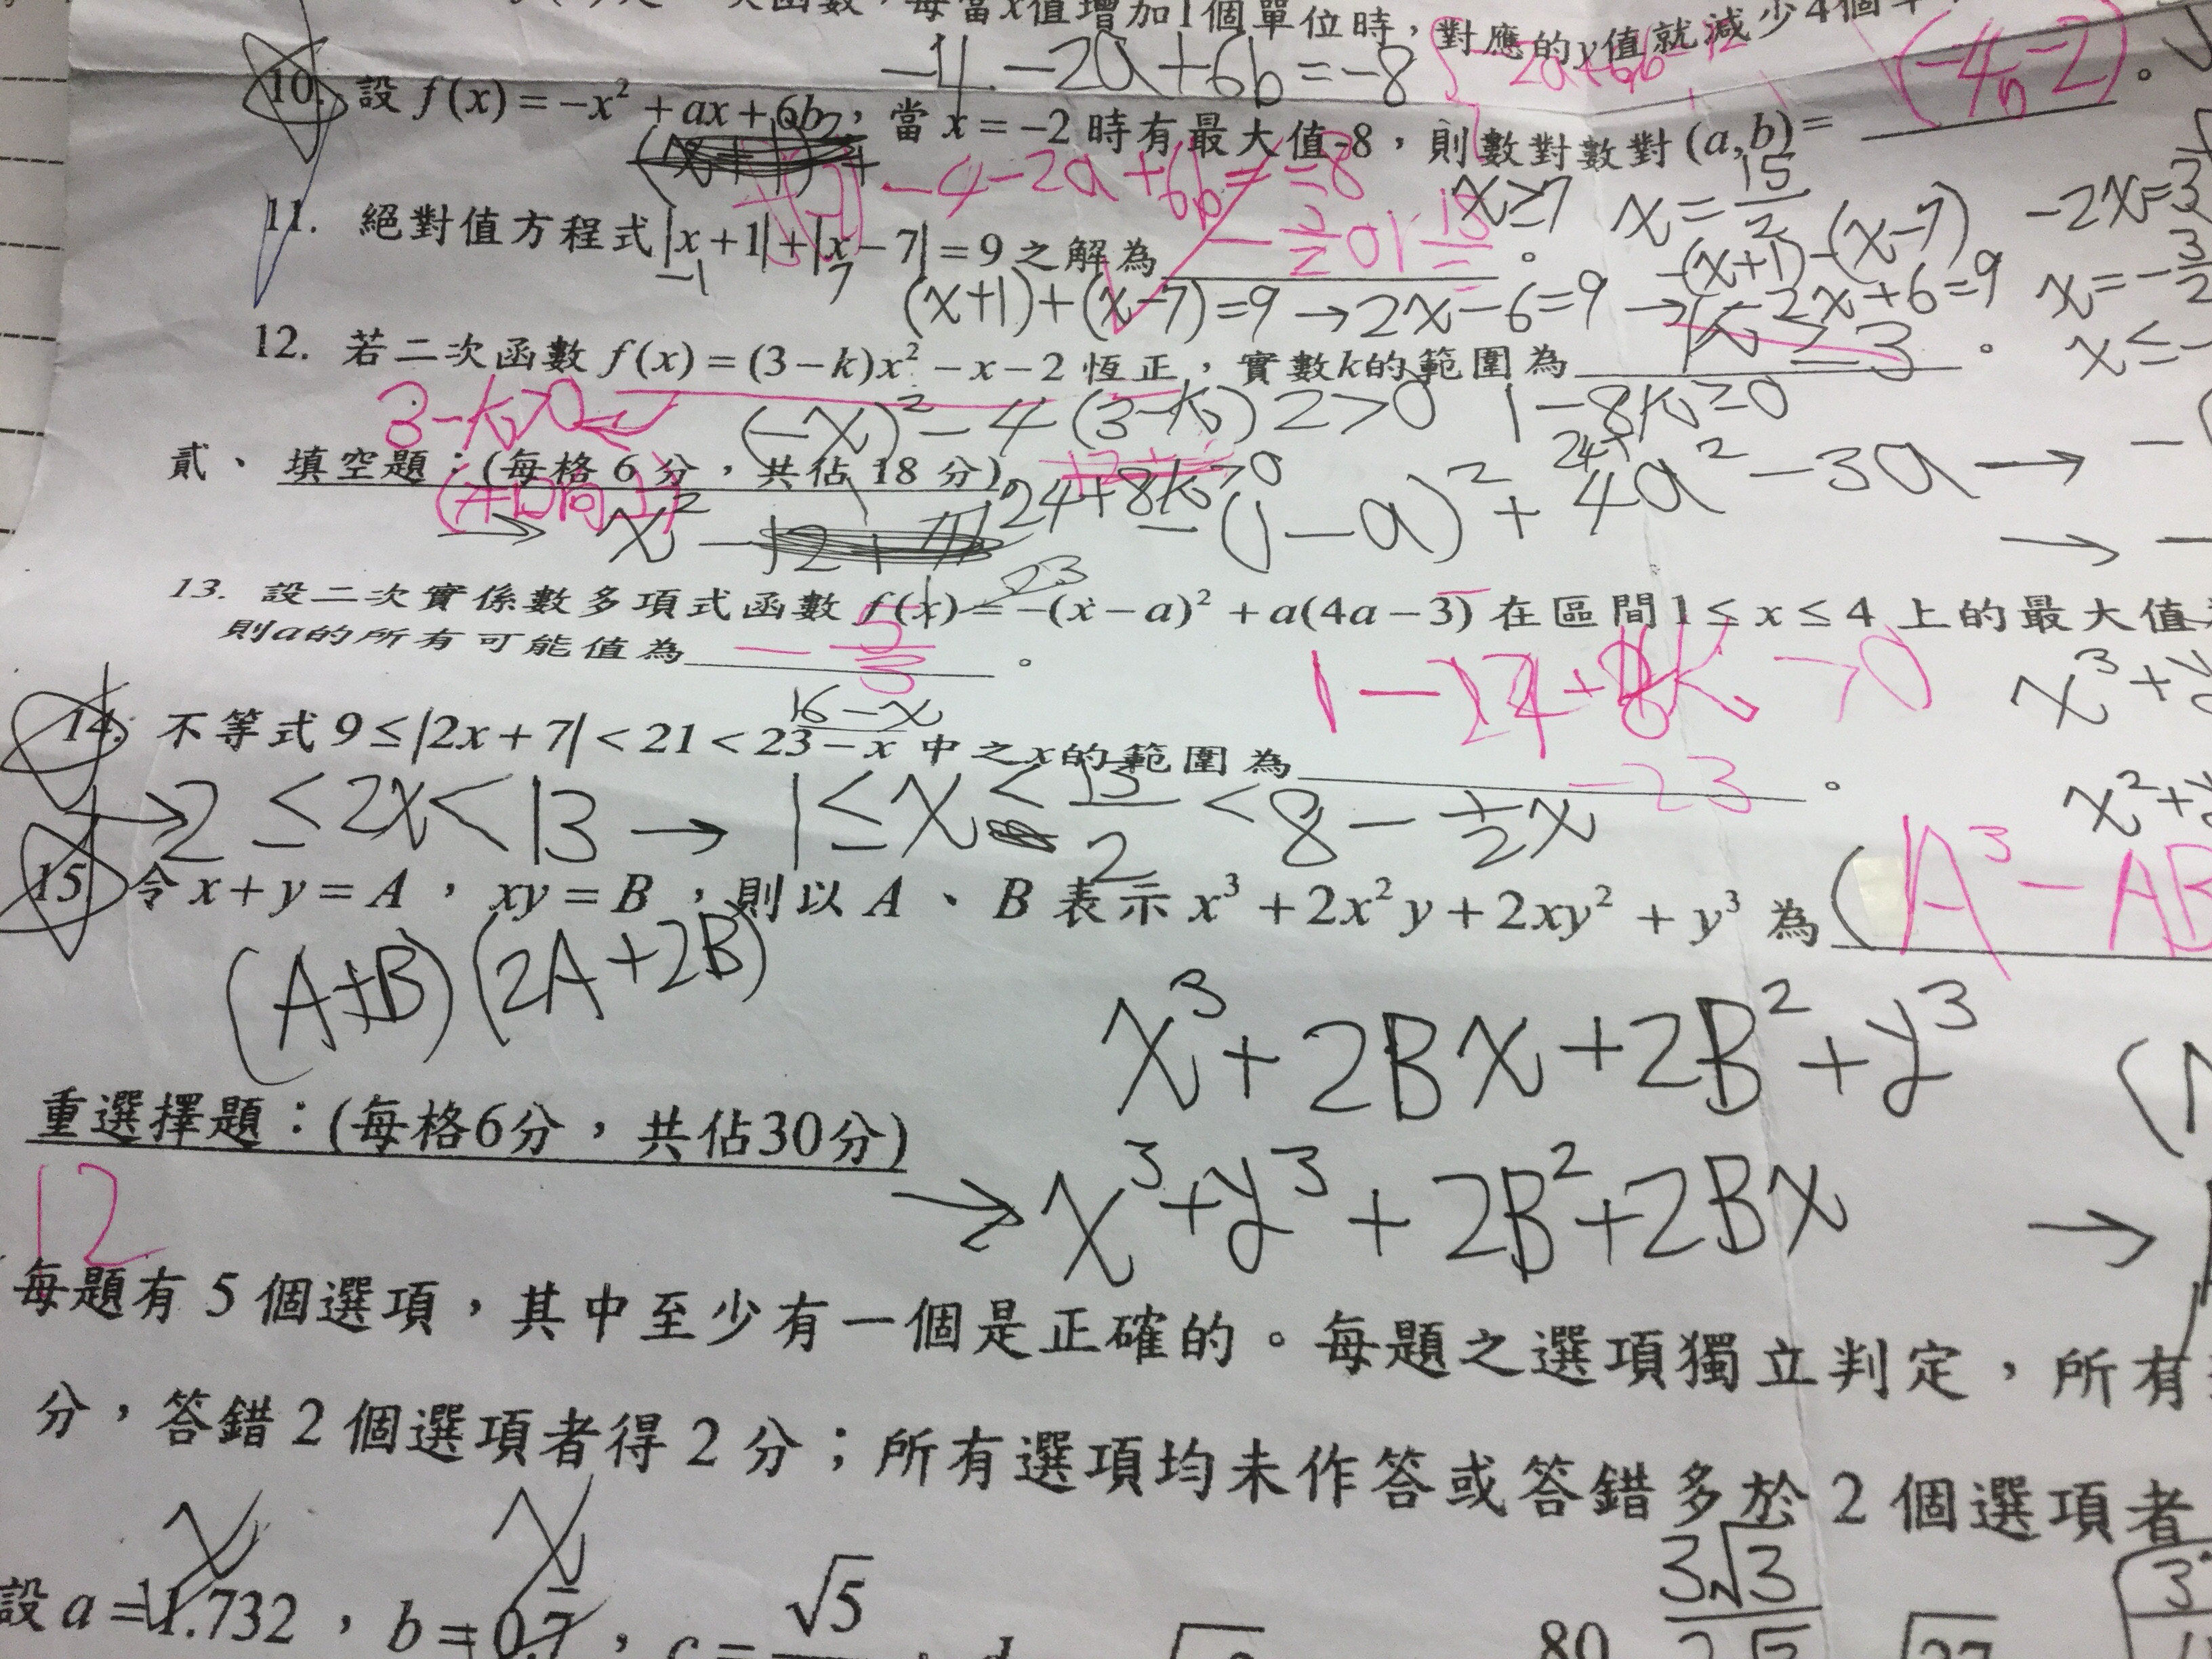 次函數,每當x值增加1個單位時,對應的y值就減少4個
-4-2a+6b=-8
10. 設 f(x) = -x² + ax + 6b,當 x = -2 時有最大值-8,則數對數對(a,b)= (-4,-2)。
-4-2a+6b=-8
x≥7 x=15/2 -2x=3
11. 絕對值方程式|x+1|+|x-7|=9之解為 -3/2 or 15/2。
-1 7 -(x+1)-(x-7)
(x+1)+(x-7)=9→2x-6=9→ -2x+6=9 x=-3/2
12. 若二次函數 f(x) = (3-k)x² - x - 2 恆正,實數k的範圍為 k≥3。 x≤-
3-k>0 (-x)²-4(3-k)2>0 1-8k≥0
貳、填空題:(每格 6 分,共佔 18 分)
(開口向上) 24+8k>0 -(1-a)²+4a²-3a→
→ x²- →
23
13. 設二次實係數多項式函數 f(x) = -(x-a)² + a(4a-3) 在區間1≤x≤4 上的最大值
則a的所有可能值為 -5/3。
1-24+8k>0 x³+y
16-x
14. 不等式 9≤|2x+7|<21<23-x 中之x的範圍為 。
-23
→2≤2x<13→1≤x<13/2<8-1/2x x²+y
15. 令 x+y=A,xy=B,則以 A、B 表示 x³+2x²y+2xy²+y³ 為 (A³-AB
(A+B)(2A+2B)
x³+2Bx+2B²+y³
重選擇題:(每格6分,共佔30分)
→x³+y³+2B²+2Bx →
12
每題有 5 個選項,其中至少有一個是正確的。每題之選項獨立判定,所有
分,答錯 2 個選項者得 2 分;所有選項均未作答或答錯多於 2 個選項者
3√3
設 a=1.732,b=0.7̄,c=√5
80 √27